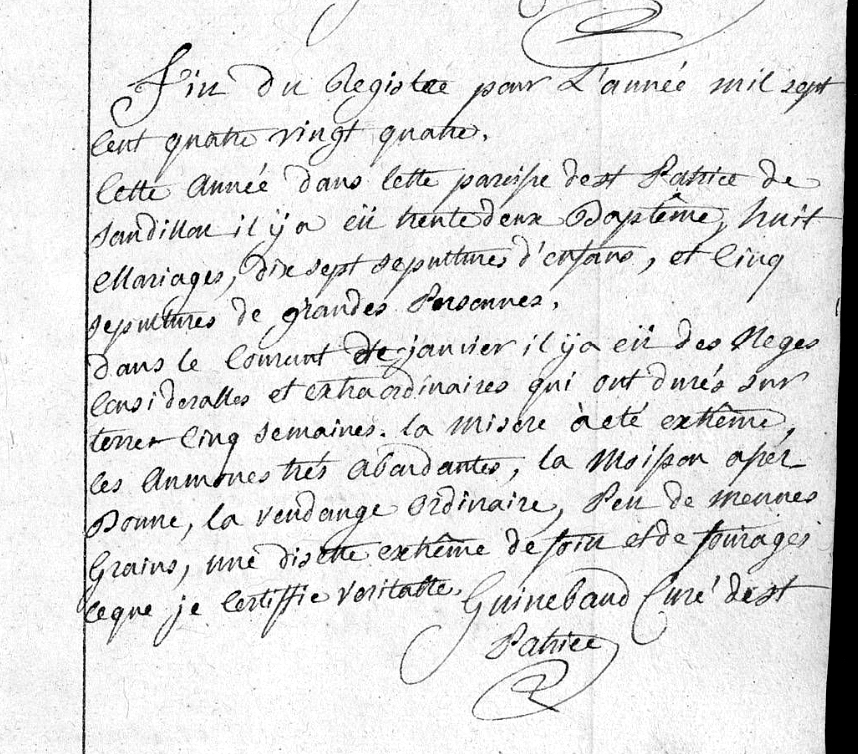 Fin du Registre pour L'année mil sept
Cent quatre vingt quatre.
Cette Année dans Cette paroisse de st Patrice de
Sandillou il ÿ a eü trente deux Baptême, huit
Mariages, dix sept sepultures d'enfans, et Cinq
sepultures de grandes Personnes.
dans le Courant de janvier il ÿ a eü des Neges
Considerables et extraordinaires qui ont durés sur
terre Cinq semaines. la Misere à eté extrême,
les Aumones trés abondantes, la Moisson assez
Bonne, la vendange ordinaire, Peu de mennes
Grains, une disette extrême de foin et de fourages
ce que je Certiffie veritable. Guinebaud Curé de st
Patrice